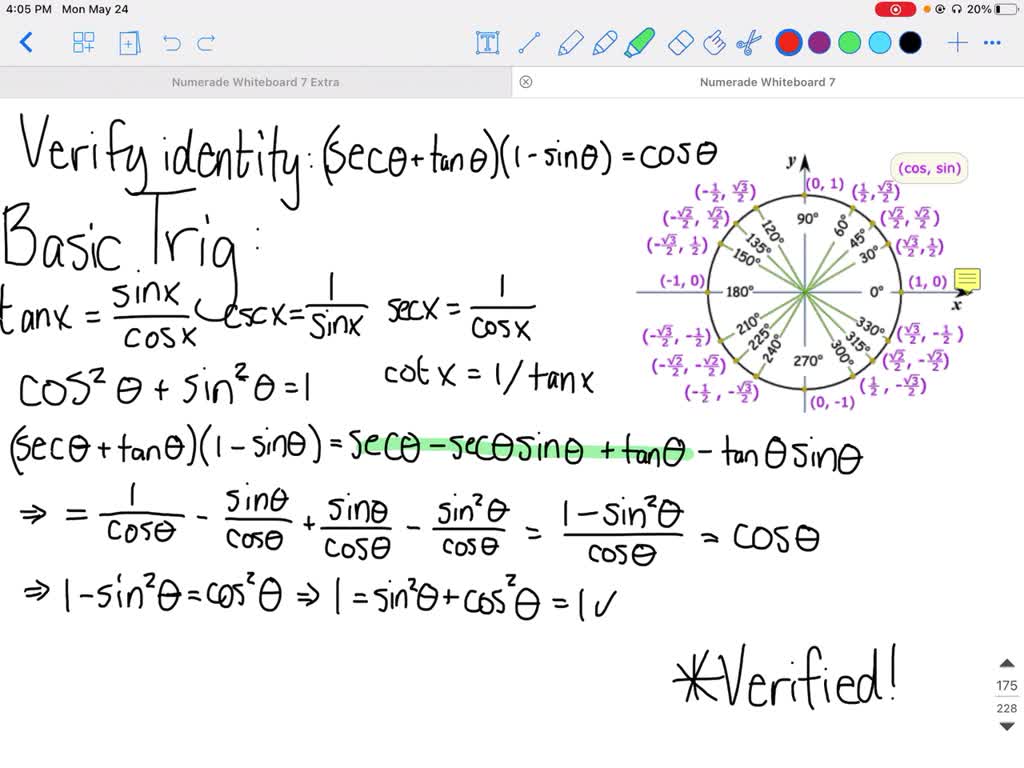 4:05 PM Mon May 24
20%
Numerade Whiteboard 7 Extra
Numerade Whiteboard 7
Verify identity: (secθ+tanθ)(1-sinθ) = cosθ
Basic Trig:
tanx = sinx/cosx cscx = 1/sinx secx = 1/cosx
cos²θ + sin²θ = 1 cot x = 1/tanx
(secθ+tanθ)(1-sinθ) = secθ - secθsinθ + tanθ - tanθsinθ
⇒ = 1/cosθ - sinθ/cosθ + sinθ/cosθ - sin²θ/cosθ = 1-sin²θ/cosθ = cosθ
⇒ 1-sin²θ = cos²θ ⇒ 1 = sin²θ+cos²θ = 1 ✓
*Verified!
y
(cos, sin)
(0, 1)
(-1/2, √3/2) (1/2, √3/2)
(-√2/2, √2/2) (√2/2, √2/2)
(-√3/2, 1/2) (√3/2, 1/2)
90°
120° 60°
135° 45°
150° 30°
(-1, 0) 180° 0° (1, 0)
x
210° 330°
225° 315°
240° 300°
270°
(-√3/2, -1/2) (√3/2, -1/2)
(-√2/2, -√2/2) (√2/2, -√2/2)
(-1/2, -√3/2) (1/2, -√3/2)
(0, -1)
175
228